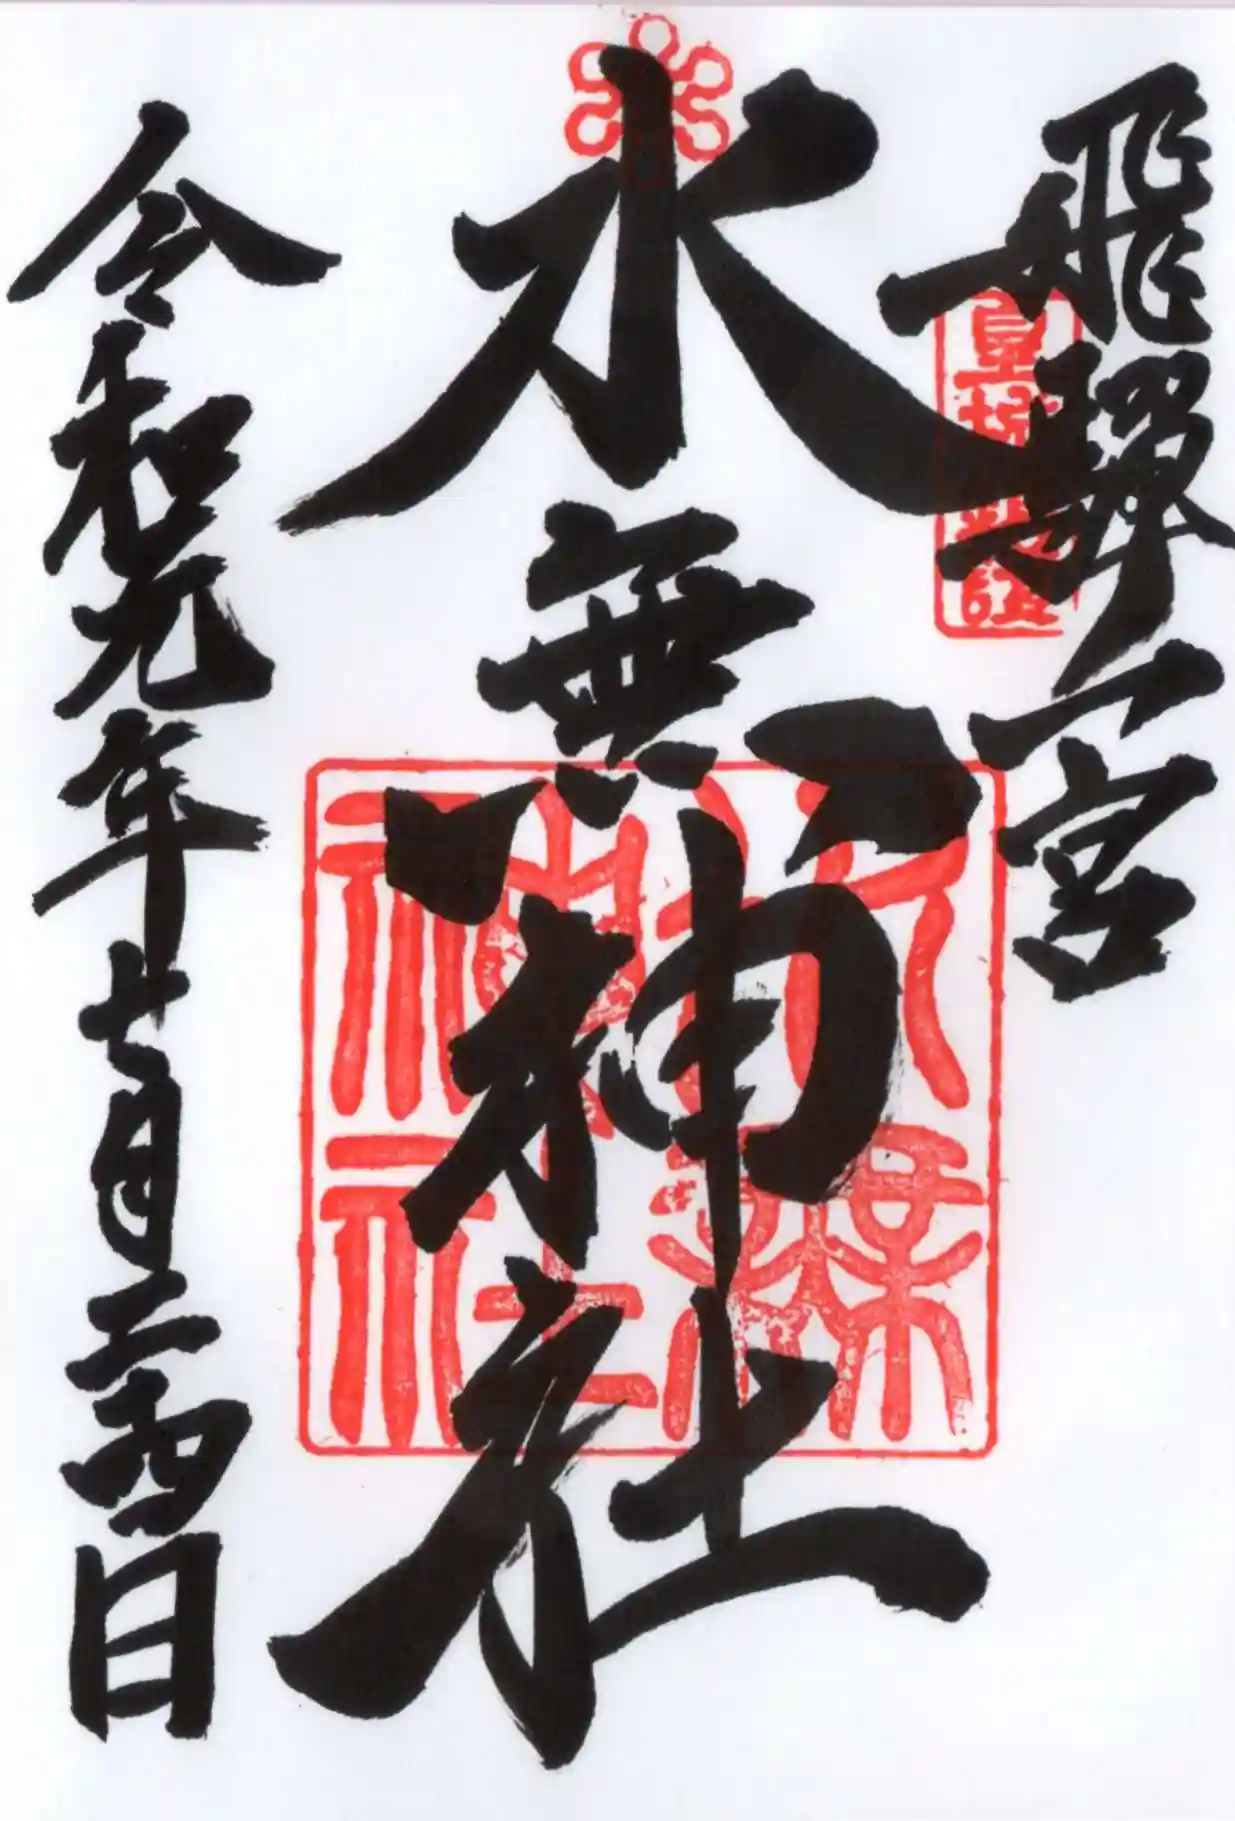 飛騨一宮
水無神社
令和元年七月二十四日
水無神社